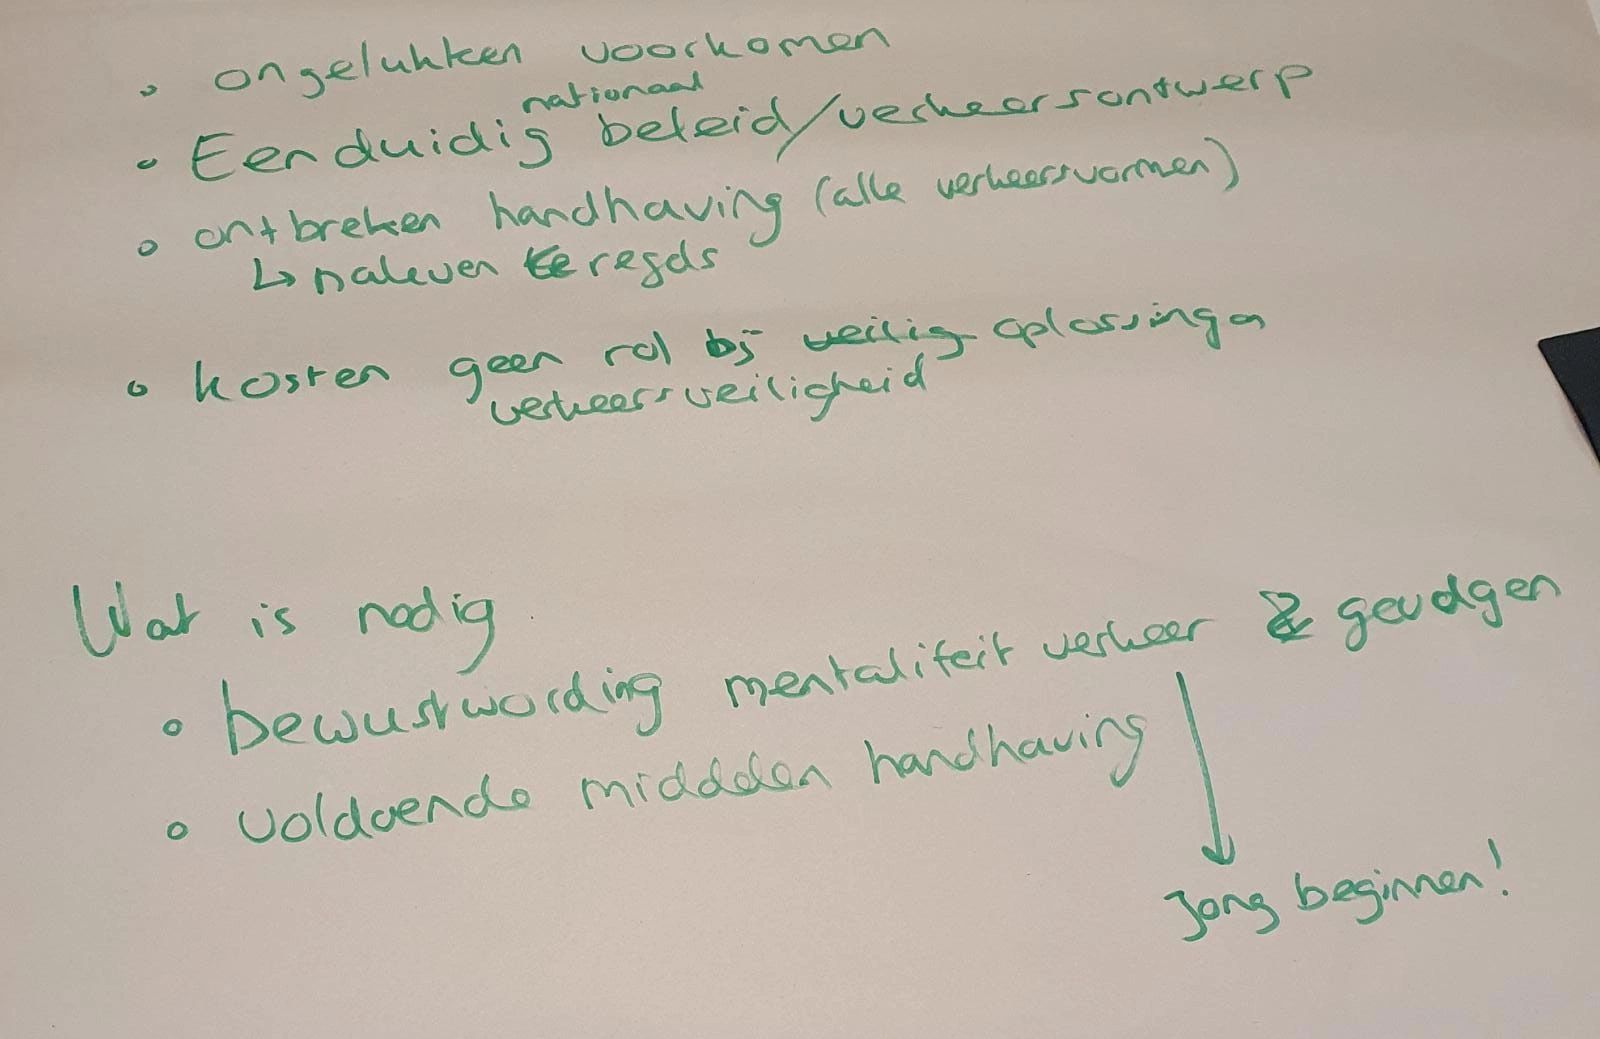 • ongelukken voorkomen
nationaal
• Eenduidig beleid/verkeersontwerp
• ontbreken handhaving (alle verkeersvormen)
↳ naleven regels
• kosten geen rol bij veilig oplossingen
verkeersveiligheid
Wat is nodig
• bewustwording mentaliteit verkeer & gevolgen
• voldoende middelen handhaving
Jong beginnen!